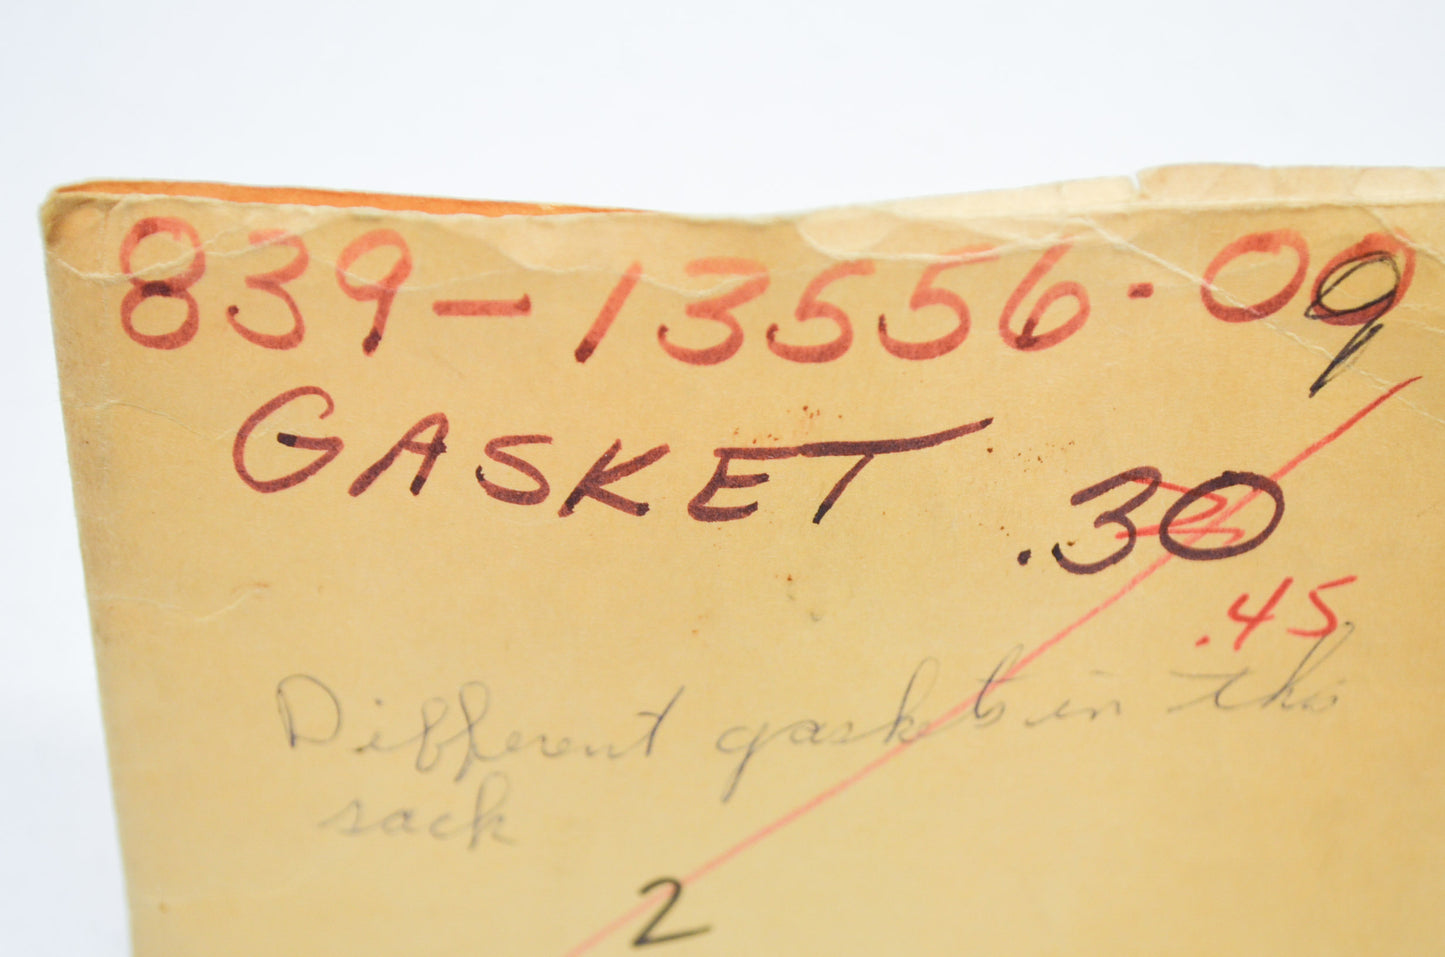 839-13556-09
GASKET .30
.45
Different gaskets in this
sack
2